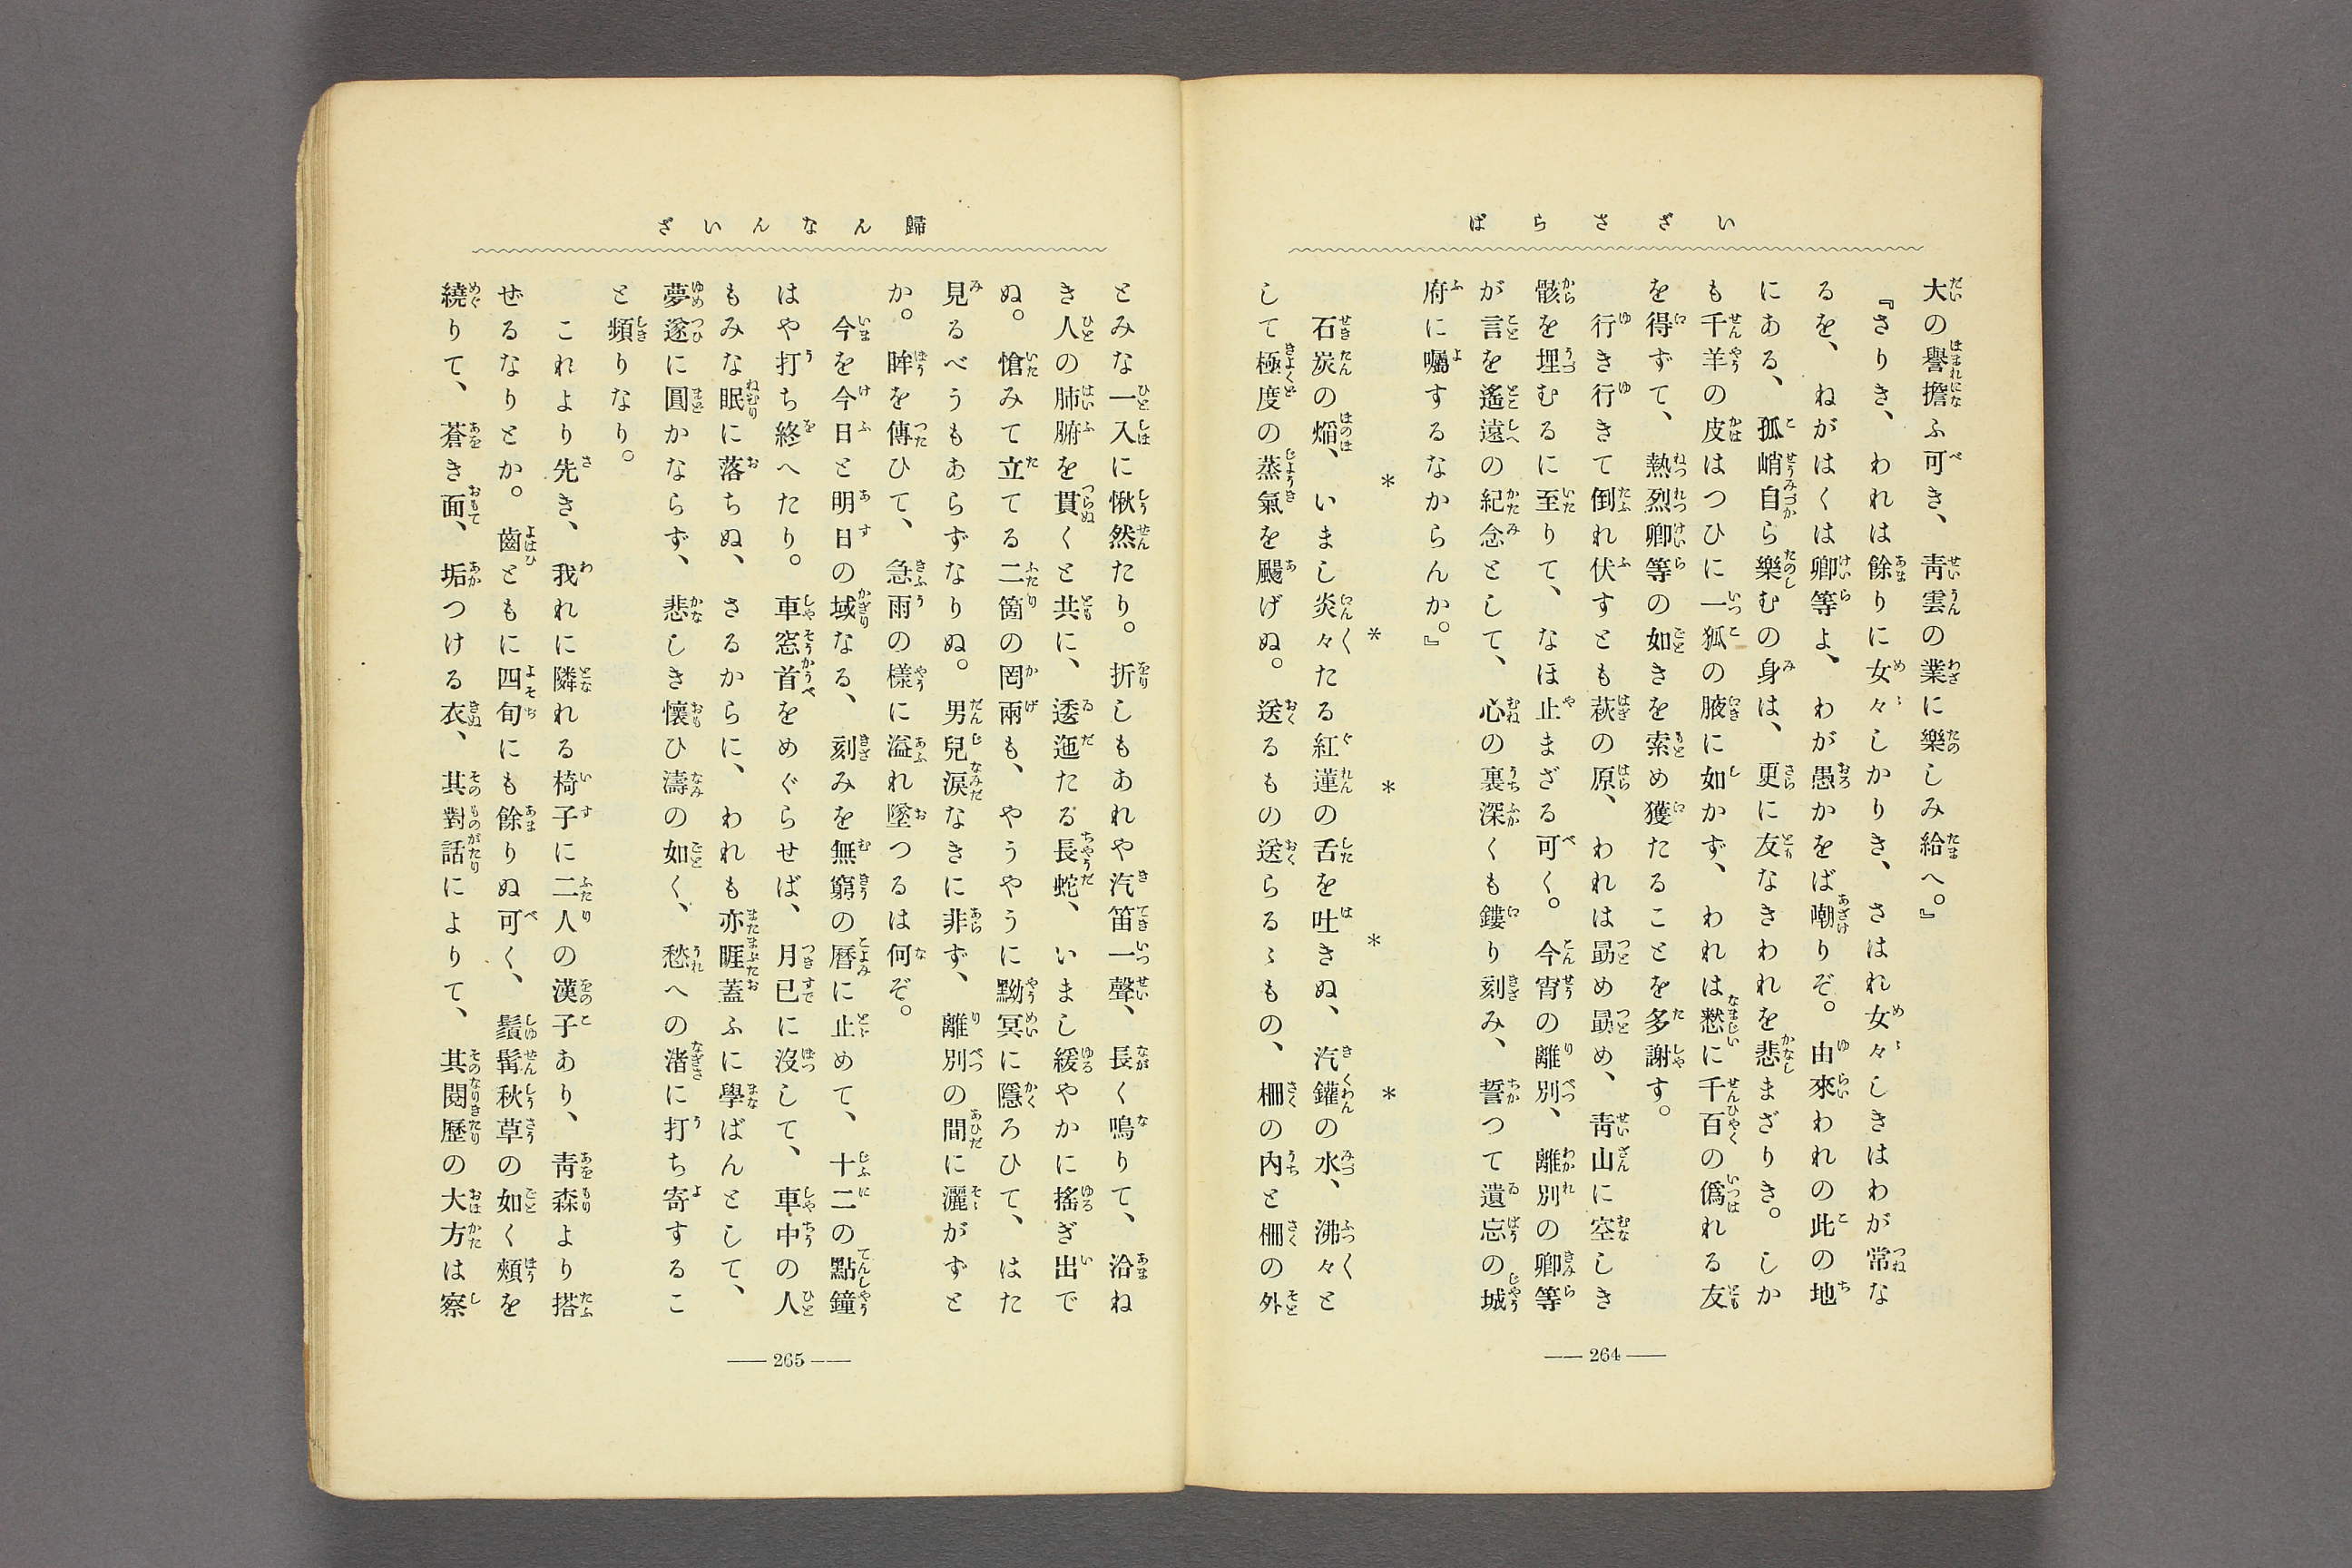 いざさらば
大の譽擔ふ可き、靑雲の業に樂しみ給へ。』
『さりき、われは餘りに女々しかりき、さはれ女々しきはわが常な
るを、ねがはくは卿等よ、わが愚かをば嘲りぞ。由來われの此の地
にある、孤峭自ら樂むの身は、更に友なきわれを悲まざりき。しか
も千羊の皮はつひに一狐の腋に如かず、われは憖に千百の僞れる友
を得ずて、熱烈卿等の如きを索め獲たることを多謝す。
行き行きて倒れ伏すとも萩の原、われは勗め勗め、靑山に空しき
骸を埋むるに至りて、なほ止まざる可く。今宵の離別、離別の卿等
が言を遙遠の紀念として、心の裏深くも鏤り刻み、誓つて遺忘の城
府に囑するなからんか。』
* * * * *
石炭の焔、いまし炎々たる紅蓮の舌を吐きぬ、汽鑵の水、沸々と
して極度の蒸氣を颺げぬ。送るもの送らるゝもの、柵の内と柵の外
— 264 —
歸んなんいざ
とみな一入に愀然たり。折しもあれや汽笛一聲、長く鳴りて、洽ね
き人の肺腑を貫くと共に、逶迤たる長蛇、いまし緩やかに搖ぎ出で
ぬ。愴みて立てる二箇の罔兩も、やうやうに黝冥に隱ろひて、はた
見るべうもあらずなりぬ。男兒涙なきに非ず、離別の間に灑がずと
か。眸を傳ひて、急雨の樣に溢れ墜つるは何ぞ。
今を今日と明日の域なる、刻みを無窮の曆に止めて、十二の點鐘
はや打ち終へたり。車窓首をめぐらせば、月已に沒して、車中の人
もみな眠に落ちぬ、さるからに、われも亦睚蓋ふに學ばんとして、
夢遂に圓かならず、悲しき懷ひ濤の如く、愁への渚に打ち寄するこ
と頻りなり。
これより先き、我れに隣れる椅子に二人の漢子あり、靑森より搭
ぜるなりとか。齒ともに四旬にも餘りぬ可く、鬚髯秋草の如く頰を
繞りて、蒼き面、垢つける衣、其對話によりて、其閱歷の大方は察
— 265 —